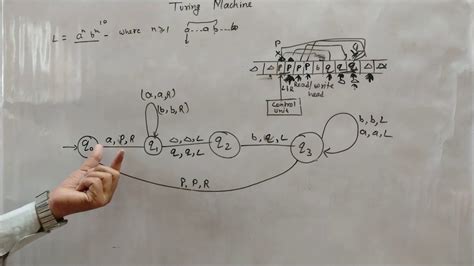 Turing Machine
L = aⁿ bⁿ - where n≥1
10
a...a b...b
△ △ P P P P b q q q △ △
P
L R Read/write head
Control unit
(a, a, R)
(b, b, R)
q₀ a, P, R q₁ △, △, L q₂ b, q, L q₃
q, q, L
b, b, L
a, a, L
P, P, R